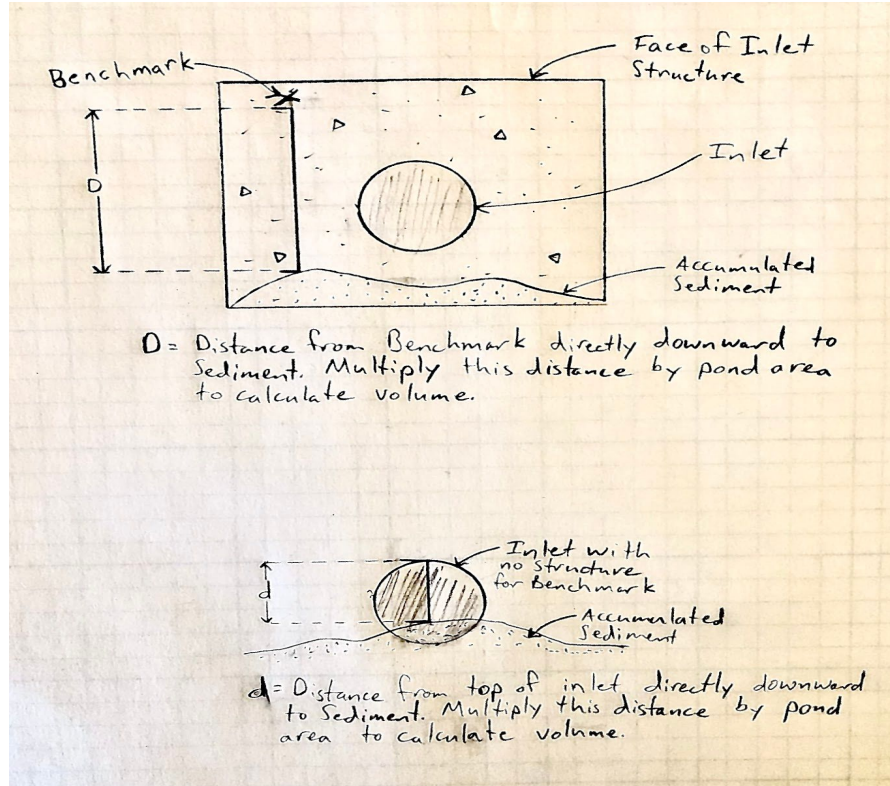 Face of Inlet
Structure
Benchmark
Inlet
D
Accumulated
Sediment
D = Distance from Benchmark directly downward to
Sediment. Multiply this distance by pond area
to calculate volume.
Inlet with
no Structure
for Benchmark
d
Accumulated
Sediment
d = Distance from top of inlet directly downward
to Sediment. Multiply this distance by pond
area to calculate volume.